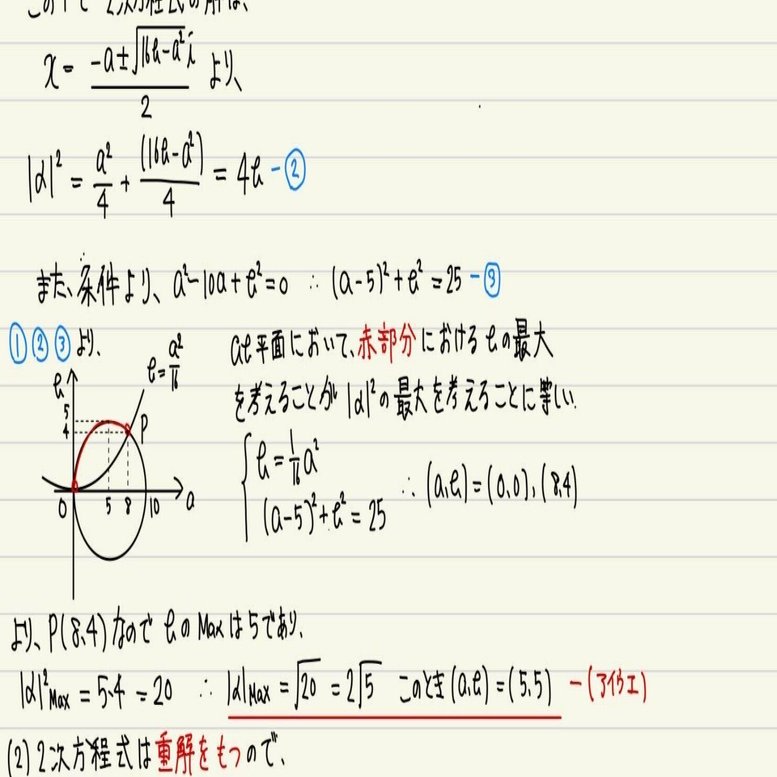 このもとで 2次方程式の解は、
x = (-a±√(16b-a²) i)/2 より、
|α|² = a²/4 + (16b-a²)/4 = 4b -②
また、条件より、a²-10a+b²=0 ∴ (a-5)²+b²=25 -③
①②③より、
b=a²/16
b
5
4
P
O 5 8 10 a
ab平面において、赤部分におけるbの最大
を考えることが |α|²の最大を考えることに等しい。
{ b=1/16 a²
(a-5)²+b²=25
∴ (a,b)=(0,0),(8,4)
より、P(8,4)なので bのMaxは5であり、
|α|²Max = 5·4 = 20 ∴ |α|Max = √20 = 2√5 このとき(a,b)=(5,5) -(アイウエ)
(2) 2次方程式は重解をもつので、